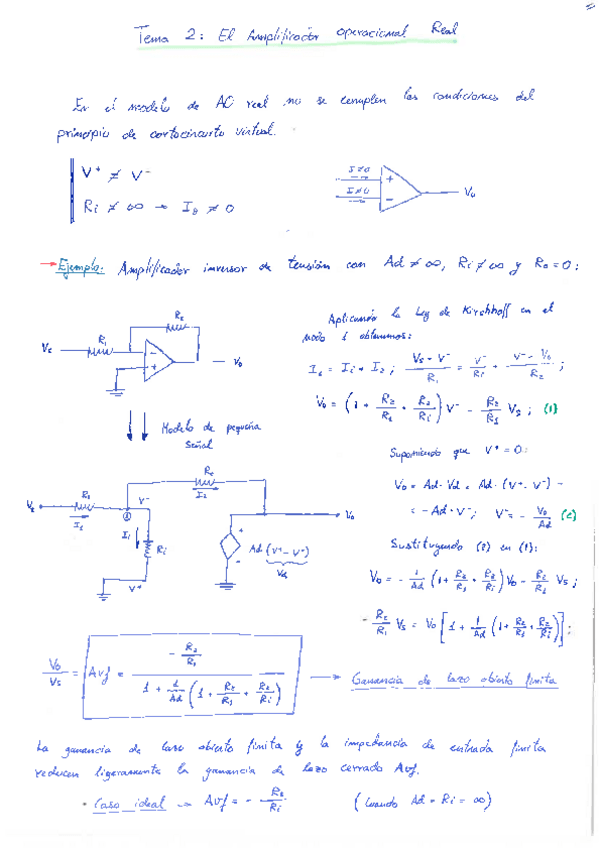 Tema 2: El Amplificador operacional Real
En el modelo de AO real no se cumplen las condiciones del
principio de cortocircuito virtual.
V⁺ ≠ V⁻
Ri ≠ ∞ → I_B ≠ 0
I≠0
I≠0
+
-
Vo
→ Ejemplo: Amplificador inversor de tensión con Ad ≠ ∞, Ri ≠ ∞ y Ro = 0:
R2
R1
Vs
-
+
Vo
Modelo de pequeña
señal
Aplicando la Ley de Kirchhoff en el
nodo 1 obtenemos:
I1 = Ii + I2 ; (Vs - V⁻)/R1 = V⁻/Ri + (V⁻ - Vo)/R2 ;
Vo = (1 + R2/R1 + R2/Ri) V⁻ - R2/R1 Vs ; (1)
Suponiendo que V⁺ = 0:
Vo = Ad · Vd = Ad · (V⁺ - V⁻) =
= -Ad · V⁻ ; V⁻ = - Vo/Ad (2)
Sustituyendo (2) en (1):
Vo = - 1/Ad (1 + R2/R1 + R2/Ri) Vo - R2/R1 Vs ;
- R2/R1 Vs = Vo [1 + 1/Ad (1 + R2/R1 + R2/Ri)] ;
R2
I2
Vs
R1
I1
V⁻
1
Ii
Ri
V⁺
Ad (V⁺ - V⁻)
Vd
Vo
Vo/Vs = Avf = (- R2/R1) / (1 + 1/Ad (1 + R2/R1 + R2/Ri)) → Ganancia de lazo abierto finita
La ganancia de lazo abierto finita y la impedancia de entrada finita
reducen ligeramente la ganancia de lazo cerrado Avf.
· Caso ideal → Avf = - R2/R1 (Cuando Ad = Ri = ∞)